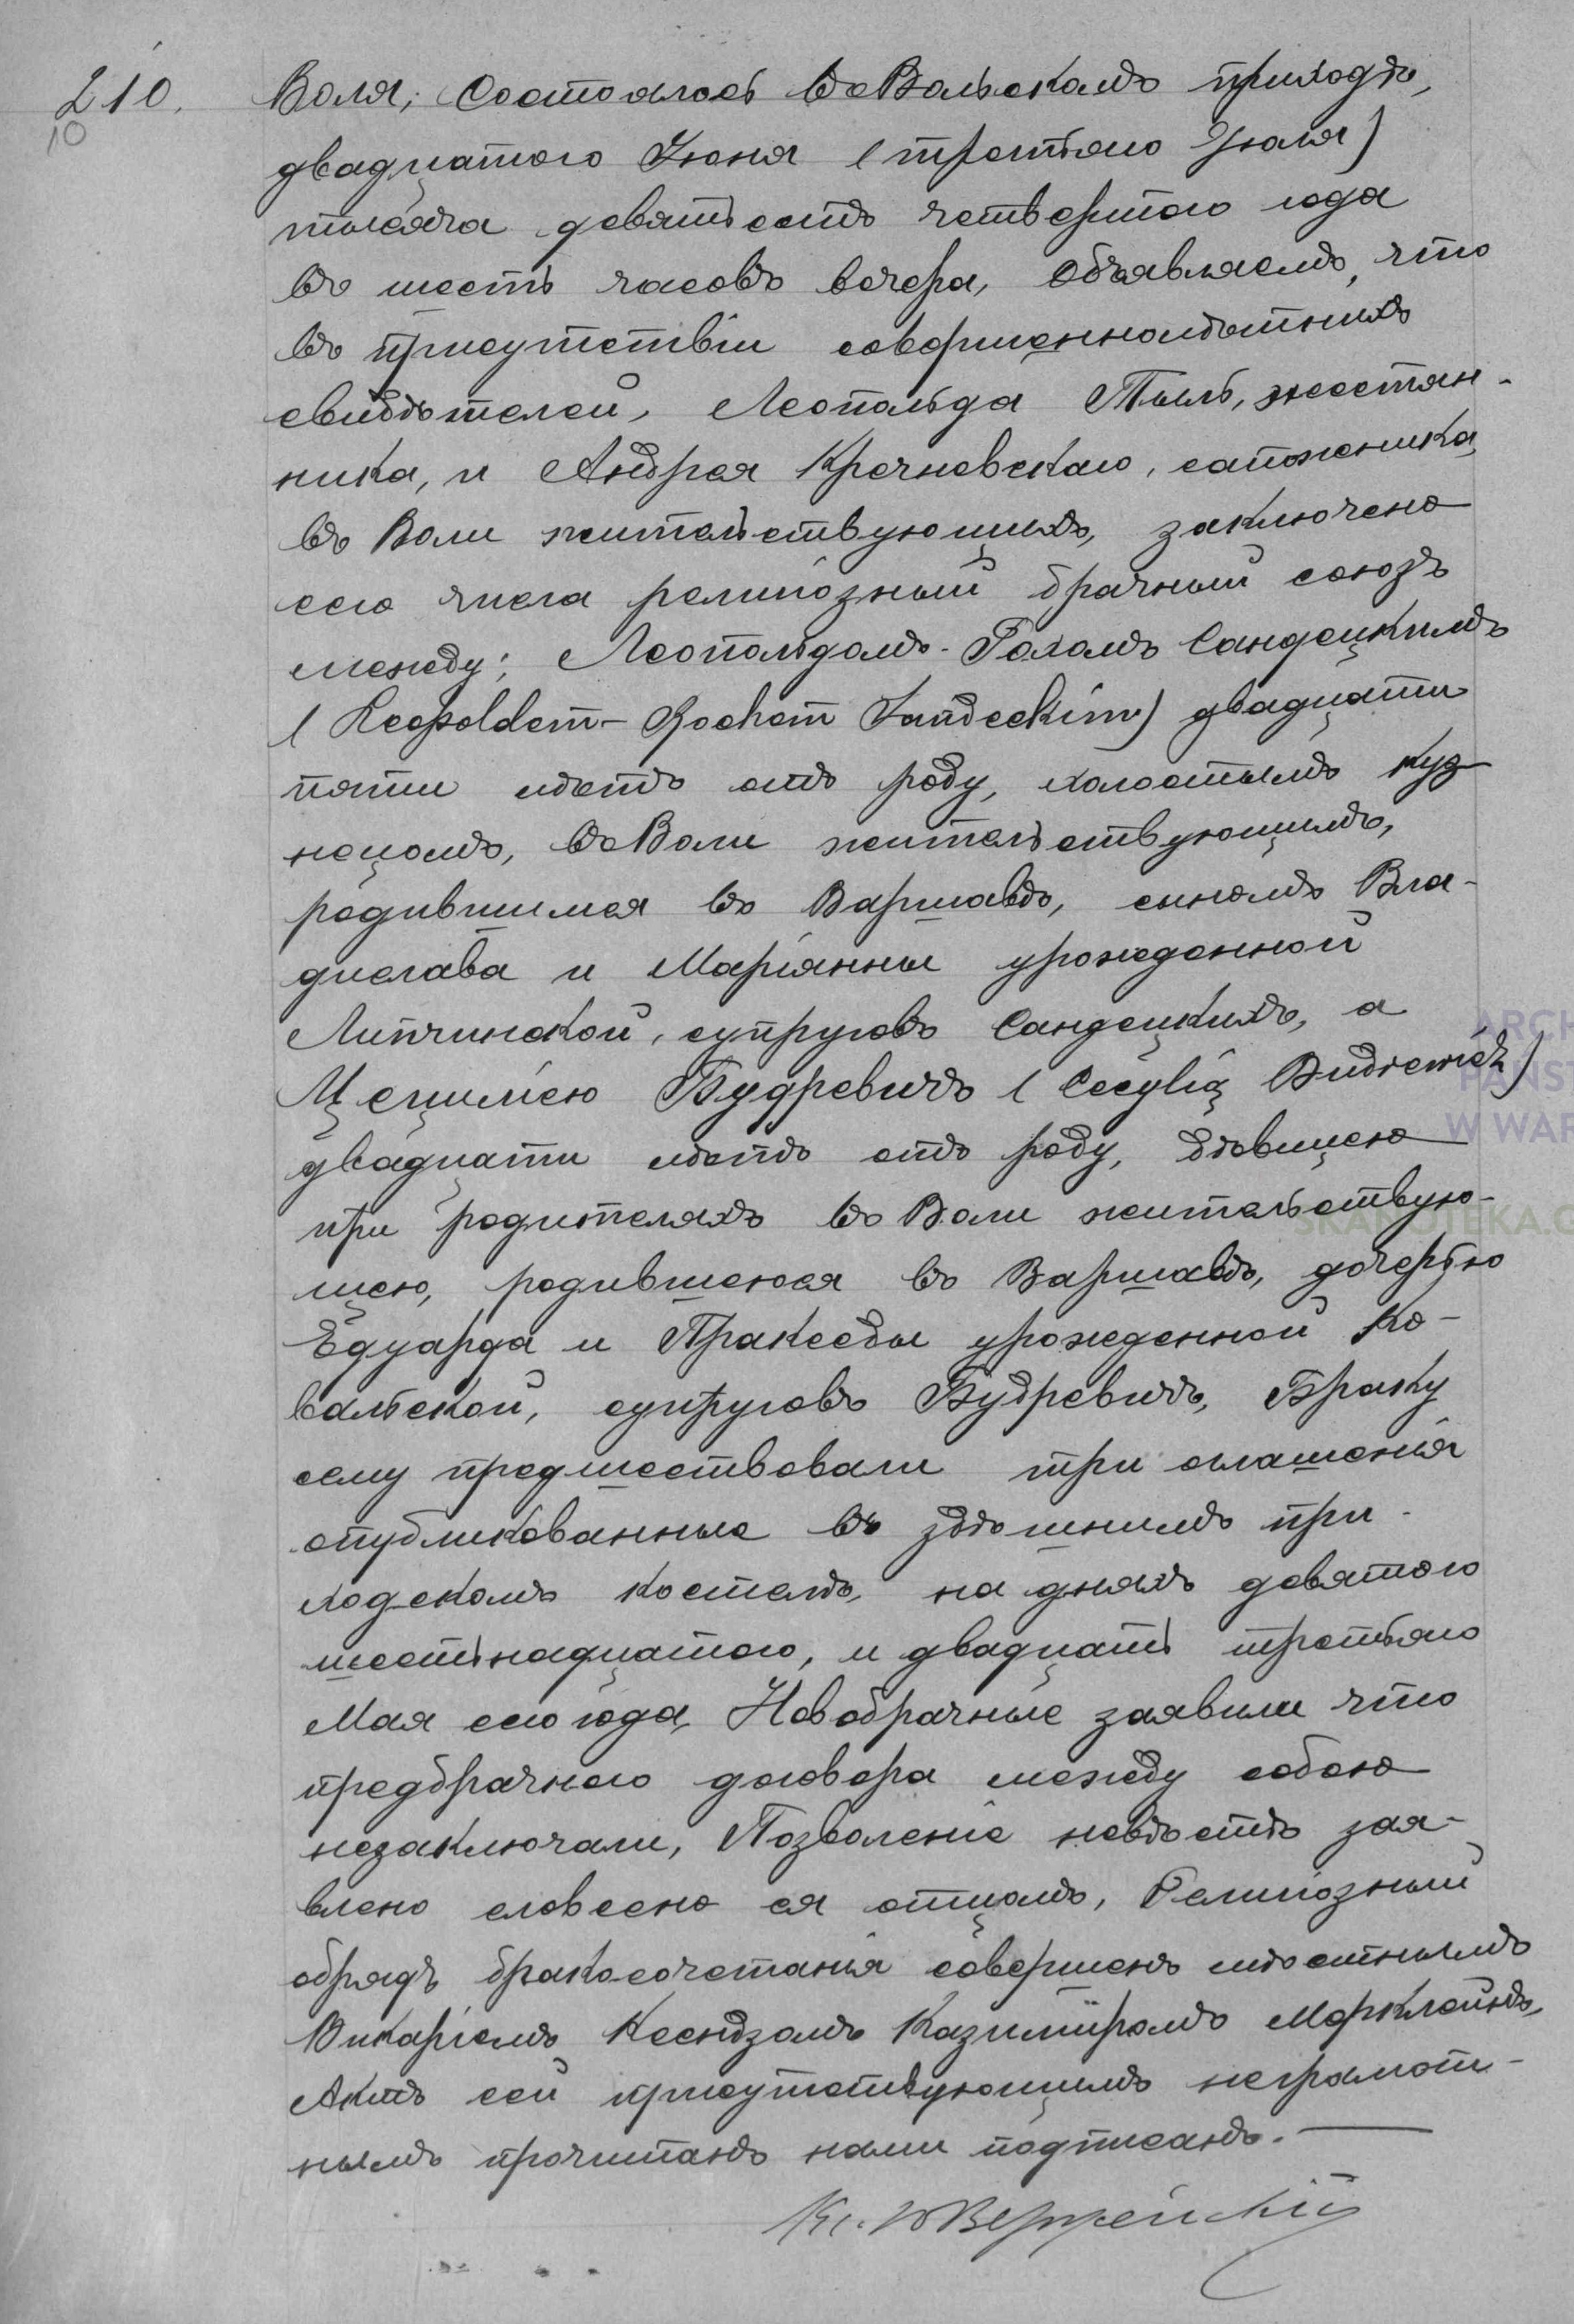 210.
10
Воля, Состоялось въ Вольскомъ приходѣ,
двадцатого Іюня (третьяго Іюля)
тысяча девятьсотъ четвертого года
въ шесть часовъ вечера, Объявляемъ, что
въ присутствіи совершеннолѣтнихъ
свидѣтелей, Леопольда Тыль, жестян-
ника, и Андрея Кречневскаго, сапожника,
въ Воли жительствующихъ, заключено
сего числа религіозный брачный союзъ
между: Леопольдомъ-Рохомъ Сандецкимъ
(Leopoldem-Rochem Sandeckim) двадцати
пяти лѣтъ отъ роду, холостымъ куз-
нецомъ, въ Воли жительствующимъ,
родившимся въ Варшавѣ, сыномъ Вла-
дислава и Маріянны урожденной
Липчинской, супруговъ Сандецкихъ, а
Цециліею Будревичъ (Cecylią Budrewicz)
двадцати лѣтъ отъ роду, дѣвицею
при родителяхъ въ Воли жительствую-
щею, родившеюся въ Варшавѣ, дочерью
Едуарда и Праксeды урожденной Ко-
вальской, супруговъ Будревичъ, Браку
сему предшествовали три оглашенія
опубликованные въ здѣшнимъ при-
ходскомъ костелѣ, на дняхъ девятого
шестьнадцатого, и двадцать третьяго
Мая сего года, Новобрачные заявили что
предбрачного договора между собою
незаключали, Позволеніе невѣстѣ зая-
влено словесно ея отцомъ, Религіозный
обрядъ бракосочетанія совершенъ мѣстнымъ
Викаріемъ Ксендзомъ Казиміромъ Мерклейнъ,
Актъ сей присутствующимъ неграмот-
нымъ прочитанъ нами подписанъ.
ARCH
PAŃST
W WAR
SKANOTEKA.G